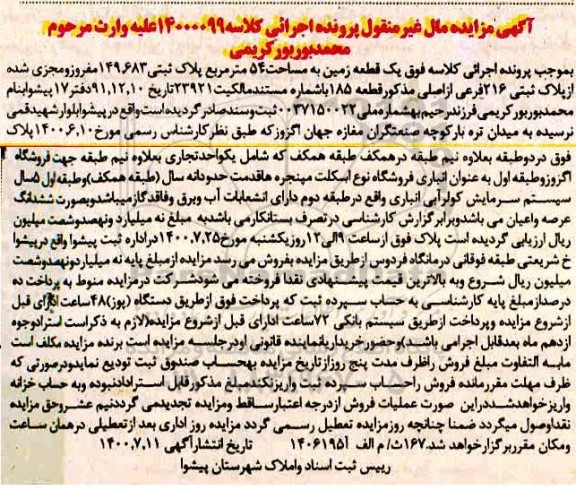 آگهی مزایده مال غیرمنقول پرونده اجرائی کلاسه ۱۴۰۰۰۰۹۹علیه وارث مرحوم
محمدپورپورکریمی
بموجب پرونده اجرائی کلاسه فوق یک قطعه زمین به مساحت۵۴ مترمربع پلاک ثبتی۱۴۹,۶۸۳مفروزومجزی شده
ازپلاک ثبتی ۲۱۶فرعی ازاصلی مذکورقطعه ۱۸۵باشماره مستندمالکیت۲۳۹۲۱تاریخ ۹۱,۱۲,۱۰دفتر۱۷پیشوابنام
محمدپورپورکریمی فرزندرحیم بهشماره ملی۰۰۳۷۱۵۰۰۲۲ثبت وسندصادرگردیده است واقع درپیشوابلوارشهیدقمی
نرسیده به میدان تره بارکوچه صنعتگران مغازه جهان اگزوزکه طبق نظرکارشناس رسمی مورخ۱۴۰۰,۶,۱۰پلاک
فوق دردوطبقه بعلاوه نیم طبقه درهمکف طبقه همکف که شامل یکواحدتجاری بعلاوه نیم طبقه جهت فروشگاه
اگزوزوطبقه اول به عنوان انباری فروشگاه نوع اسکلت میجره هاقدمت حدودانه سال (طبقه همکف)وطبقه اول ۵سال
سیستم سرمایش کولرآبی انباری واقع درطبقه دوم دارای انشعابات آب وبرق وفاقدگازمیباشدوبصورت ششدانگ
عرصه واعیان می باشدوبرابرگزارش کارشناسی درتصرف بستانکارمی باشدبه مبلغ نه میلیارد ونهصدوشصت میلیون
ریال ارزیابی گردیده است پلاک فوق ازساعت ۹الی۱۲روزیکشنبه مورخ۱۴۰۰,۷,۲۵دراداره ثبت پیشوا واقع درپیشوا
خ شریعتی طبقه فوقانی درمانگاه فردوس ازطریق مزایده بفروش می رسد مزایده ازمبلغ پایه نه میلیاردونهصدوشصت
میلیون ریال شروع وبه بالاترین قیمت پیشنهادی نقدا فروخته می شودشرکت درمزایده منوط به پرداخت ده
درصدازمبلغ پایه کارشناسی به حساب سپرده ثبت که پرداخت فوق ازطریق دستگاه (پوز)۴۸ساعت اداری قبل
ازشروع مزایده وپرداخت ازطریق سیستم بانکی ۷۲ساعت ادارای قبل ازشروع مزایده(لازم به ذکراست استردادوجوه
ازدهم ماه بعدقابل اجرامی باشد)وحضورخریداریانماینده قانونی اودرجلسه مزایده است برنده مزایده مکلف است
مابه التفاوت مبلغ فروش راظرف مدت پنج روزازتاریخ مزایده بهحساب صندوق ثبت تودیع نمایدودرصورتی که
ظرف مهلت مقررمانده فروش رابحساب سپرده ثبت واریزنکندمبلغ مذکورقابل استردادنبوده وبه حساب خزانه
واریزخواهدشددراین صورت عملیات فروش ازدرجه اعتبارساقط ومزایده تجدیدمی گرددنیم عشروحق مزایده
نقداوصول میگردد ضمنا چنانچه روزمزایده تعطیل رسمی گردد مزایده روز اداری بعد ازتعطیلی درهمان ساعت
ومکان مقرربرگزارخواهد شد.۱۶۷ث/م الف آ۱۴۰۶۱۹۵ تاریخ انتشارآگهی ۱۴۰۰,۷,۱۱
رییس ثبت اسناد واملاک شهرستان پیشوا